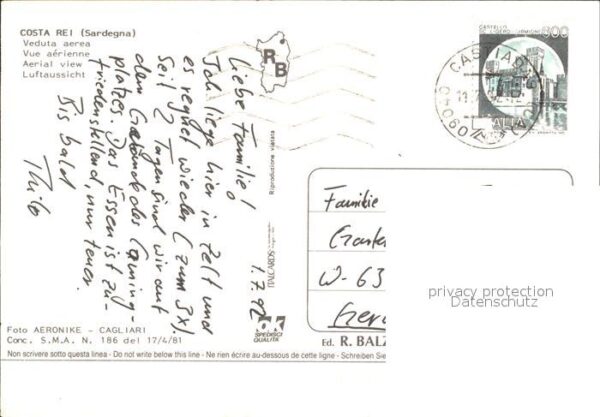 COSTA REI (Sardegna)
Veduta aerea
Vue aérienne
Aerial view
Luftaussicht
RB
500
CASTIADAS
ITALIA
1.7.92
Liebe Familie!
Ich liege hier im Zelt und
es regnet wieder (zum 3x)
Seit 2 Tagen sind wir auf
dem Gelände des Camping-
platzes. Das Essen ist zu-
friedenstellend, nur teuer.
Bis bald
Thilo
Riproduzione vietata
ITALCARDS
OK
SPEDISCI
QUALITÀ
Familie
W-63
privacy protection
Datenschutz
Foto AERONIKE - CAGLIARI
Conc. S.M.A. N. 186 del 17/4/81
Ed. R. BALZ
Non scrivere sotto questa linea - Do not write below this line - Ne rien écrire au-dessous de cette ligne - Schreiben Sie